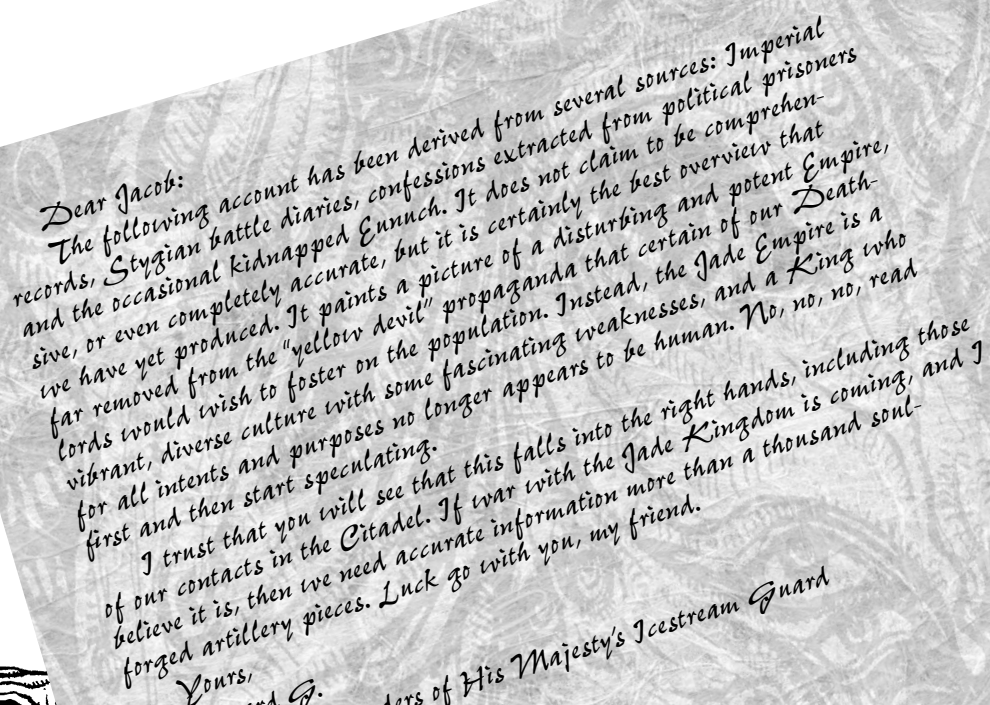 Dear Jacob:
The following account has been derived from several sources: Imperial
records, Stygian battle diaries, confessions extracted from political prisoners
and the occasional kidnapped Eunuch. It does not claim to be comprehen-
sive, or even completely accurate, but it is certainly the best overview that
we have yet produced. It paints a picture of a disturbing and potent Empire,
far removed from the "yellow devil" propaganda that certain of our Death-
lords would wish to foster on the population. Instead, the Jade Empire is a
vibrant, diverse culture with some fascinating weaknesses, and a King who
for all intents and purposes no longer appears to be human. No, no, no, read
first and then start speculating.
I trust that you will see that this falls into the right hands, including those
of our contacts in the Citadel. If war with the Jade Kingdom is coming, and I
believe it is, then we need accurate information more than a thousand soul-
forged artillery pieces. Luck go with you, my friend.
Yours,
G.
of His Majesty's Icestream Guard